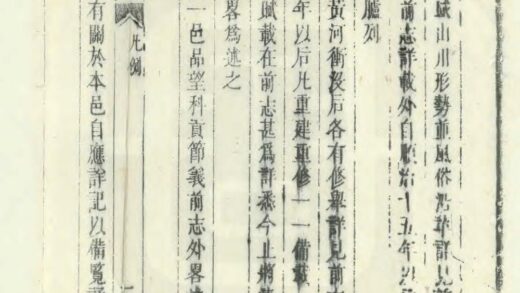 賦山川形勢並風俗沿革詳見前
前志詳載外自順治十五年以
臚列
黃河衝沒后各有修舉詳見前
年以后凡重建重修一一備載
賦載在前志甚爲詳悉今止將
畧爲述之
一邑品望科貢節義前志外畧
凡例
有關於本邑自應詳記以備覽